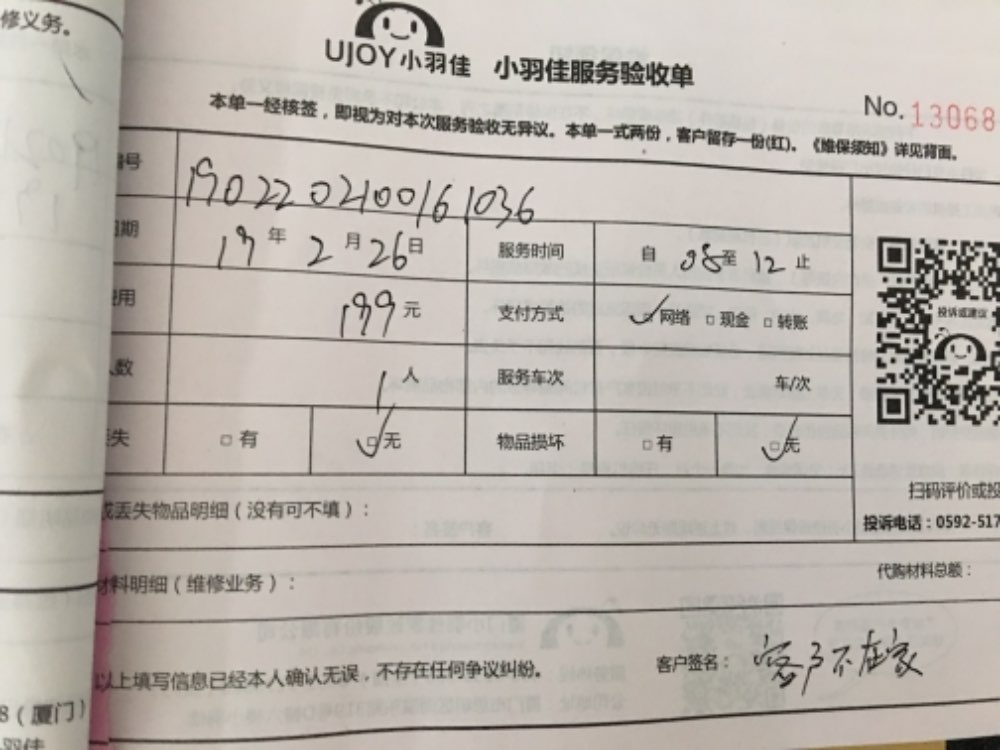 修义务。
UJOY小羽佳 小羽佳服务验收单
No. 13068
本单一经核签，即视为对本次服务验收无异议。本单一式两份，客户留存一份(红)。《维保须知》详见背面。
号 1902202100161036
期 19年 2月 26日 服务时间 自 08 至 12 止
用 199元 支付方式 ☑网络 □现金 □转账
投诉或建议
数 1人 服务车次 车/次
失 □有 ☑无 物品损坏 □有 ☑无
扫码评价或投
丢失物品明细（没有可不填）：
投诉电话：0592-517
材料明细（维修业务）：
代购材料总额：
以上填写信息已经本人确认无误，不存在任何争议纠纷。
客户签名： 客户不在家
8（厦门）
羽佳